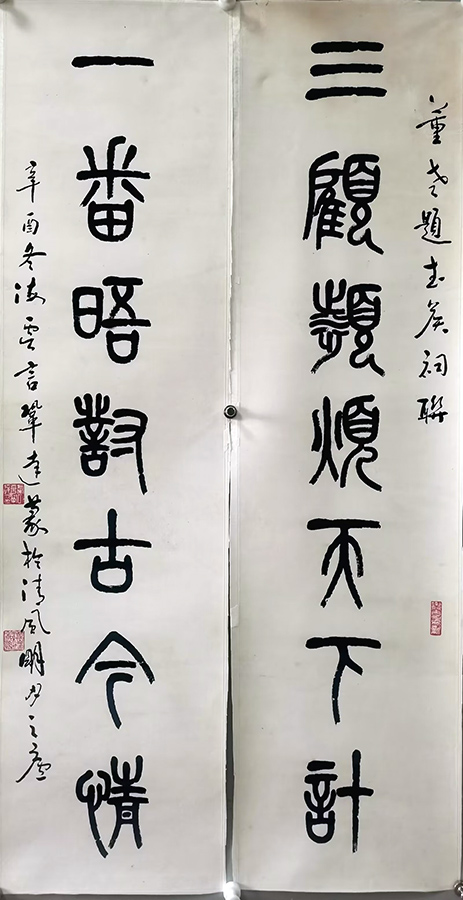 董老題武侯祠聯
三顧頻煩天下計
一番晤對古今情
辛酉冬海虞言恭達篆於清風明月之廬